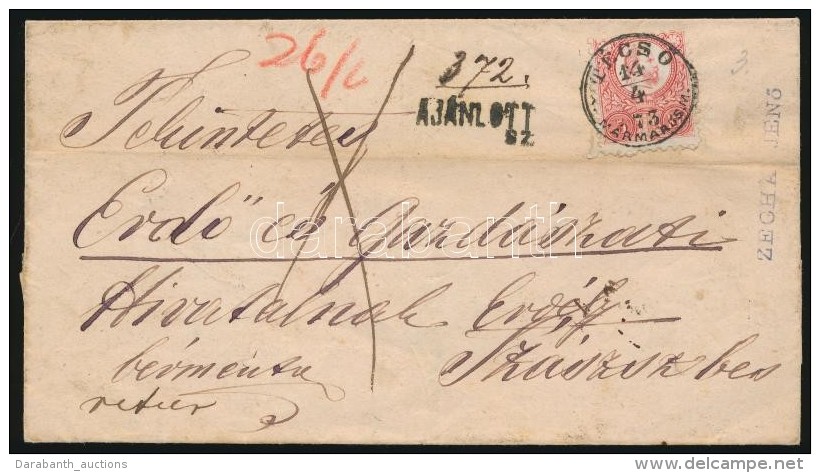 26/
372.
AJÁNLOTT
SZ
TÉCSO
14
4
73
MÁRMAROS M.
3.
ZECHA JENŐ
Tekintetes
Erdő" és Gazdászati
Hivatalnak Erdély
Szászsebes
bérmentve
retier
darabanth
Darabanth_auctions
www.delcampe.net